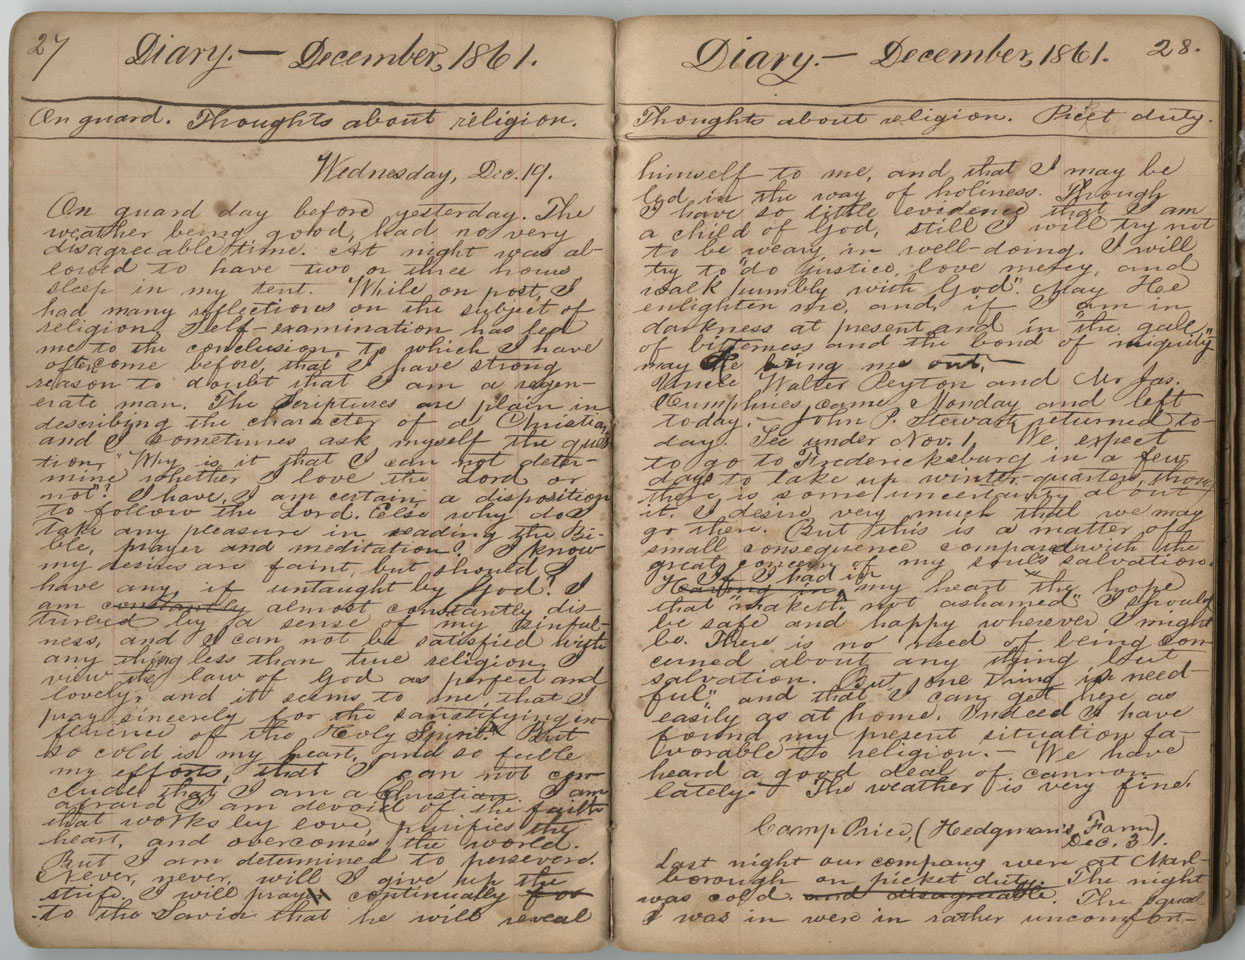 27
Diary.— December, 1861.
On guard. Thoughts about religion.
Wednesday, Dec. 19.
On guard day before yesterday. The
weather being good, had no very
disagreeable time. At night was al-
lowed to have two or three hours
sleep in my tent. While on post, I
had many reflections on the subject of
religion. Self-examination has led
me to the conclusion, to which I have
often come before, that I have strong
reason to doubt that I am a regen-
erate man. The Scriptures are plain in
describing the character of a Christian
and I sometimes ask myself the ques-
tion, "Why is it that I can not deter-
mine whether I love the Lord or
not"? I have, I am certain a disposition
to follow the Lord. Else why do I
take any pleasure in reading the Bi-
ble, prayer and meditation? I know
my desires are faint, but should I
have any if untaught by God? I
am constantly almost constantly dis-
turbed by a sense of my sinful-
ness, and I can not be satisfied with
any thing less than true religion. I
view the law of God as perfect and
lovely, and it seems to me that I
pray sincerely for the sanctifying in-
fluence of the Holy Spirit. But
so cold is my heart, and so feeble
my efforts, that I can not con-
clude that I am a Christian. I am
afraid I am devoid of the faith
that works by love, purifies the
heart, and overcomes the world.
But I am determined to persevere.
Never, never, will I give up the
strife. I will pray continually for
to the Savior that he will reveal
Diary.— December, 1861. 28.
Thoughts about religion. Picet duty.
himself to me, and that I may be
led in the way of holiness. Though
I have so little evidence that I am
a child of God, still I will try not
to be weary in well-doing. I will
try to "do justice, love mercy, and
walk humbly with God". May He
enlighten me, and, if I am in
darkness at present and in "the gall
of bitterness and the bond of iniquity"
may He bring me out.—
Uncle Walter Peyton and Mr Jas.
Humphries came Monday and left
today. John P. Stewart returned to-
day. See under Nov. 1. We expect
to go to Fredericksburg in a few
days to take up winter-quarters, though
there is some uncertainty about
it. I desire very much that we may
go there. But this is a matter of
small consequence compared with the
great concern of my soul's salvation.
If I had in
Having in my heart the hope
that "maketh not ashamed" I should
be safe and happy wherever I might
be. There is no need of being con-
cerned about any thing but
salvation. But "one thing is need-
ful" and that I can get here as
easily as at home. Indeed I have
found my present situation fa-
vorable to religion.— We have
heard a good deal of cannon
lately. The weather is very fine.
Camp Price, (Hedgman's Farm)
Dec. 31.
Last night our company were at Marl-
borough on picket duty. The night
was cold and disagreeable. The squad
I was in were in rather uncomfort-